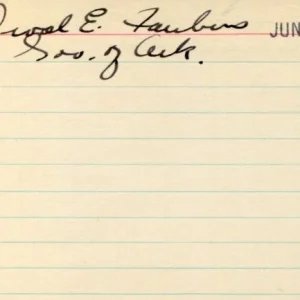 Orval E. Faubus JUN
Gov. of Ark.